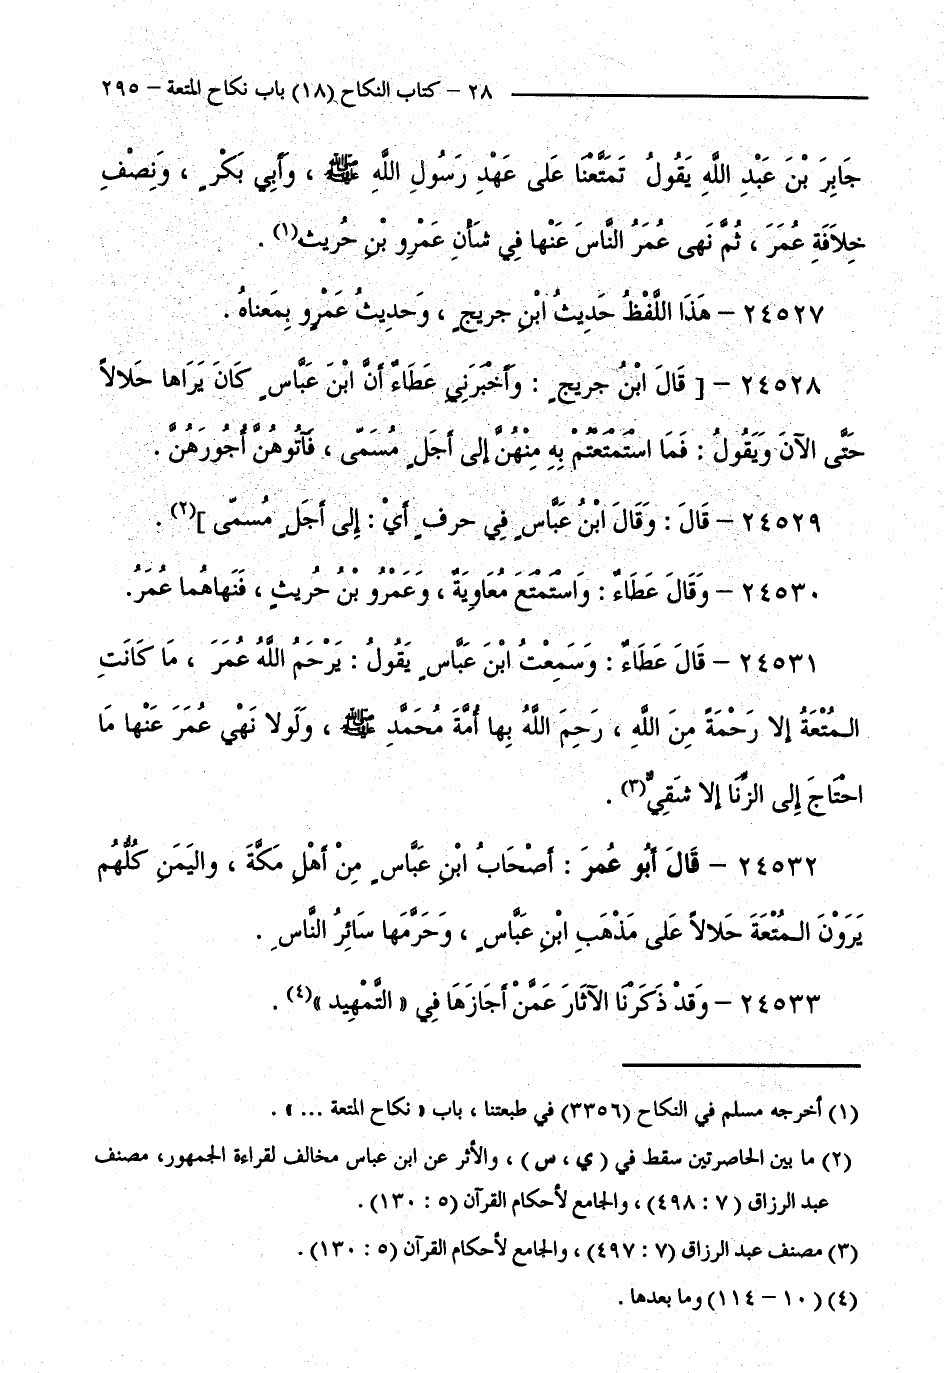 ٢٨ – كتاب النكاح (١٨) باب نكاح المتعة – ٢٩٥
جَابِرَ بْنَ عَبْدِ اللَّهِ يَقُولُ تَمَتَّعْنَا عَلى عَهْدِ رَسُولِ اللَّهِ ﷺ ، وَأَبِي بَكْرٍ ، وَنِصْفِ
خِلاَفَةِ عُمَرَ ، ثُمَّ نَهى عُمَرُ النَّاسَ عَنْها فِي شَأْنِ عَمْرِو بْنِ حُريث(١) .
٢٤٥٢٧ – هَذَا اللَّفْظُ حَدِيثُ ابْنِ جريجٍ ، وَحَدِيثُ عَمْرٍو بِمَعناهُ .
٢٤٥٢٨ – [ قَالَ ابْنُ جريجٍ : وَأَخْبَرَنِي عَطَاءٌ أَنَّ ابْنَ عَبَّاسٍ كَانَ يَرَاها حَلالاً
حَتَّى الآنَ وَيَقُولُ : فَمَا اسْتَمْتَعْتُمْ بِهِ مِنْهُنَّ إِلى أَجَلٍ مُسَمّى ، فَآتُوهُنَّ أُجُورَهُنَّ .
٢٤٥٢٩ – قَالَ : وَقَالَ ابْنُ عَبَّاسٍ فِي حرفٍ أَيْ : إِلى أَجَلٍ مُسمّى ](٢) .
٢٤٥٣٠ – وَقَالَ عَطَاءٌ : وَاسْتَمْتَعَ مُعَاوِيَةُ ، وَعَمْرُو بْنُ حُريثٍ ، فَنَهاهُما عُمَرُ.
٢٤٥٣١ – قَالَ عَطَاءٌ : وَسَمِعْتُ ابْنَ عَبَّاسٍ يَقُولُ : يَرْحَمُ اللَّهُ عُمَرَ ، مَا كَانَتِ
الـمُتْعَةُ إلا رَحْمَةً مِنَ اللَّهِ ، رَحِمَ اللَّهُ بِها أُمَّةَ مُحَمَّدٍ ﷺ ، وَلَولا نَهْي عُمَرَ عَنْها مَا
احتَْاجَ إِلى الزِّنَا إلا شَقِيٌّ(٣) .
٢٤٥٣٢ – قَالَ أَبُو عُمرَ : أَصْحَابُ ابْنِ عَبَّاسٍ مِنْ أَهْلِ مَكَّةَ ، واليَمَنِ كُلُّهُم
يَرَوْنَ الـمُتْعَةَ حَلالاً عَلى مَذْهَبِ ابْنِ عَبَّاسٍ ، وَحَرَّمَها سَائِرُ النَّاسِ .
٢٤٥٣٣ – وَقَدْ ذَكَرْنَا الآثَارَ عَمَّنْ أَجَازَهَا فِي « التَّمْهِيد »(٤) .
(١) أخرجه مسلم في النكاح (٣٣٥٦) في طبعتنا ، باب « نكاح المتعة ... » .
(٢) ما بين الحاصرتين سقط في ( ي ، س ) ، والأثر عن ابن عباس مخالف لقراءة الجمهور، مصنف
عبد الرزاق ( ٧ : ٤٩٨) ، والجامع لأحكام القرآن (٥ : ١٣٠) .
(٣) مصنف عبد الرزاق (٧ : ٤٩٧) ، والجامع لأحكام القرآن (٥ : ١٣٠) .
(٤) (١٠ – ١١٤) وما بعدها .